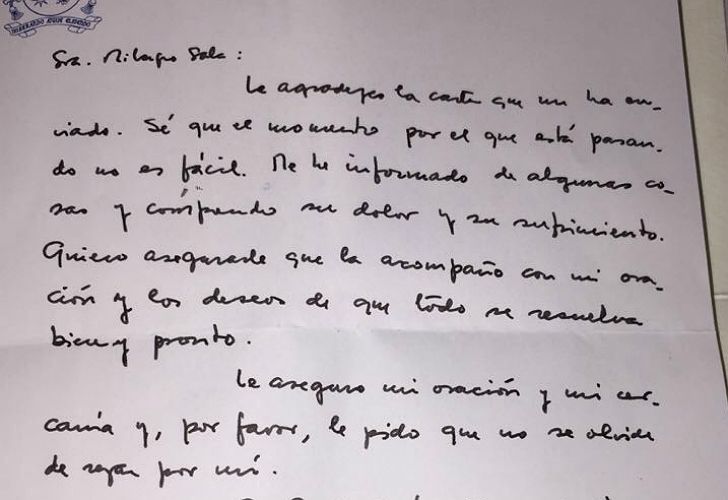 MISERANDO ATQUE ELIGENDO
Sra. Milagro Sala:
Le agradezco la carta que me ha en-
viado. Sé que el momento por el que está pasan-
do no es fácil. Me he informado de algunas co-
sas y comprendo su dolor y su sufrimiento.
Quiero asegurarle que la acompaño con mi ora-
ción y los deseos de que todo se resuelva
bien y pronto.
Le aseguro mi oración y mi cer-
canía y, por favor, le pido que no se olvide
de rezar por mí.